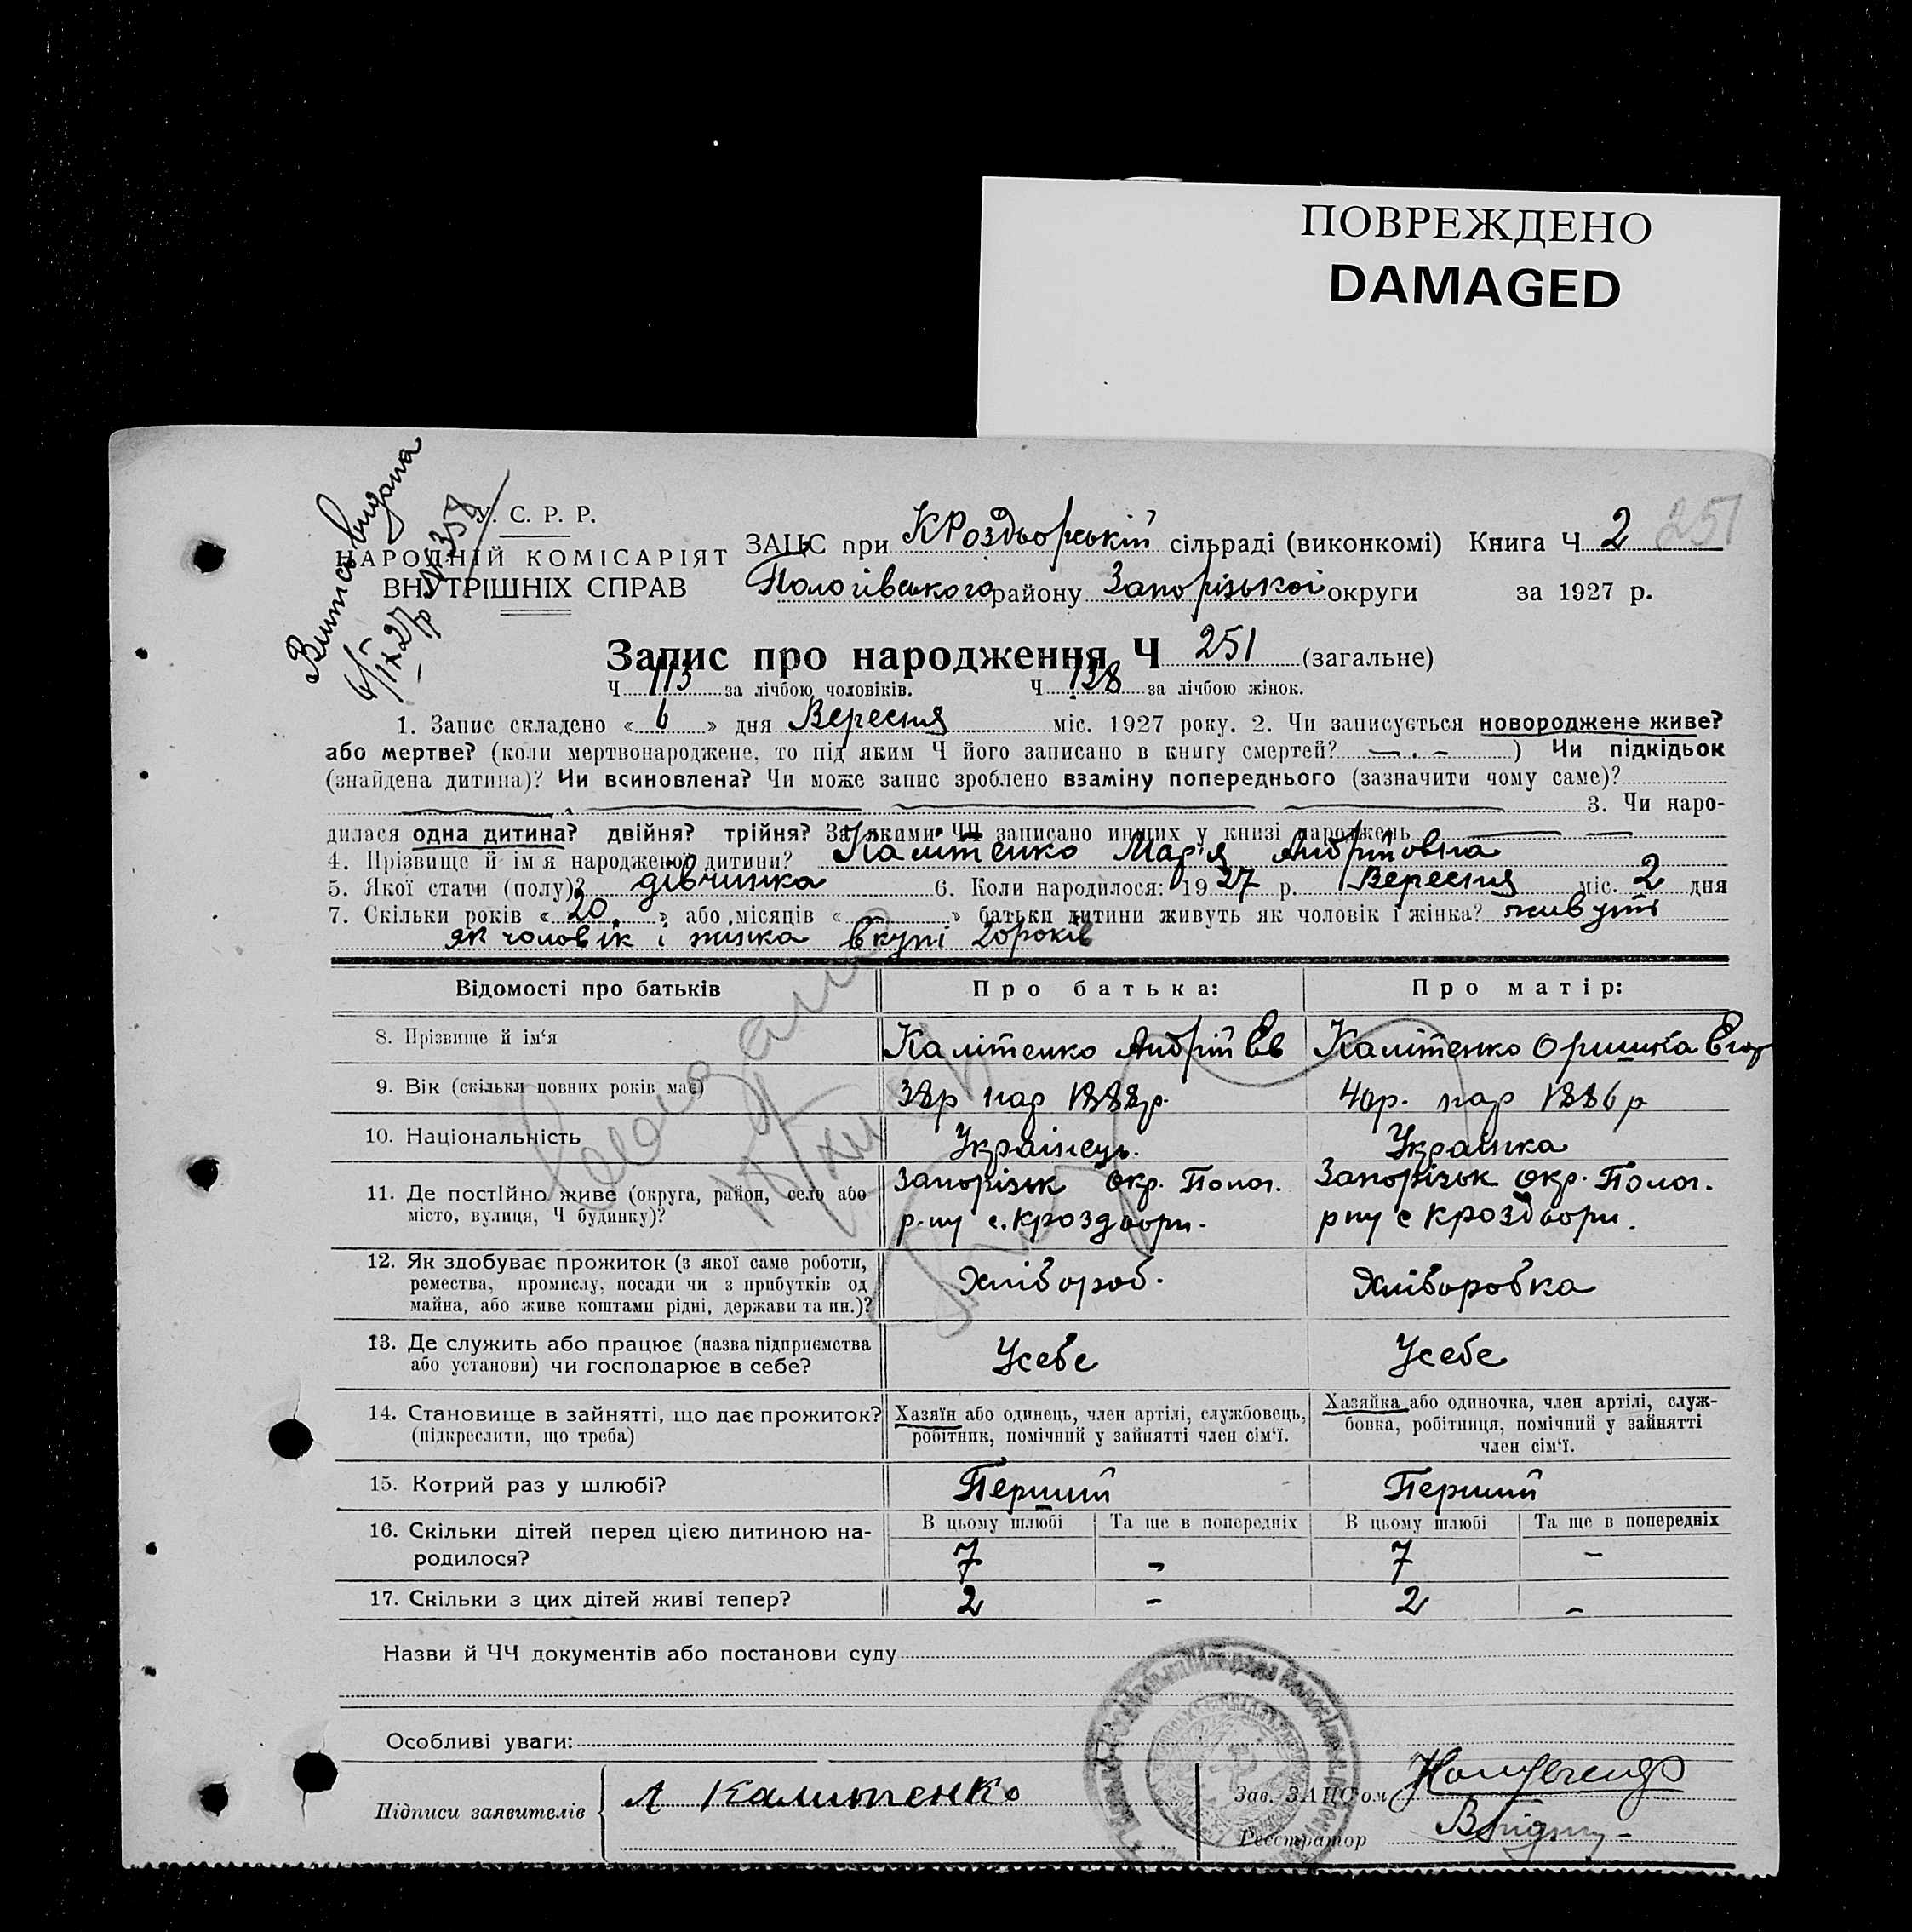 ПОВРЕЖДЕНО
DAMAGED
Витись видана
6/IX 27р № 358
У. С. Р. Р.
НАРОДНІЙ КОМІСАРІЯТ
ВНУТРІШНІХ СПРАВ
ЗАЦС при КРоздьорській сільраді (виконкомі) Книга Ч 2 251
Пологівського району Запорізької округи за 1927 р.
Запис про народження Ч 251 (загальне)
Ч 113 за лічбою чоловіків. Ч 138 за лічбою жінок.
1. Запис складено « 6 » дня Вересня міс. 1927 року. 2. Чи записується новороджене живе?
або мертве? (коли мертвонароджене, то під яким Ч його записано в книгу смертей? — . - ) Чи підкідьок
(знайдена дитина)? Чи всиновлена? Чи може запис зроблено взаміну попереднього (зазначити чому саме)?
3. Чи наро-
дилася одна дитина? двійня? трійня? За якими ЧЧ записано инших у книзі народжень — —
4. Прізвище й ім'я народженої дитини? Калітенко Мар'я Андріївна
5. Якої стати (полу)? дівчинка 6. Коли народилося: 1927 р. Вересня міс. 2 дня
7. Скільки років « 20 » або місяців « » батьки дитини живуть як чоловік і жінка? живуть
як чоловік і жинка вкупі 20 років
Відомості про батьків Про батька: Про матір:
8. Прізвище й ім'я Калітенко Андрій Єв Калітенко Оришка Егор
9. Вік (скільки повних років має) 38р нар 1888р. 40р. нар 1886р
10. Національність Українець. Українка
11. Де постійно живе (округа, район, село або місто, вулиця, Ч будинку)? Запорізьк окр. Полог. Запорізьк окр. Полог.
р-ну с. Кроздьори. рну с Кроздьори.
12. Як здобуває прожиток (з якої саме роботи,
ремества, промислу, посади чи з прибутків од
майна, або живе коштами рідні, держави та ин.)? Хлібороб. Хліборобка
13. Де служить або працює (назва підприємства
або установи) чи господарює в себе? Усебе Усебе
14. Становище в зайнятті, що дає прожиток?
(підкреслити, що треба)
Хазяїн або одинець, член артілі, службовець,
робітник, помічний у зайнятті член сім'ї.
Хазяйка або одиночка, член артілі, служ-
бовка, робітниця, помічний у зайнятті
член сім'ї.
15. Котрий раз у шлюбі? Перший Перший
16. Скільки дітей перед цією дитиною на-
родилося?
В цьому шлюбі Та ще в попередніх В цьому шлюбі Та ще в попередніх
7 - 7 -
17. Скільки з цих дітей живі тепер? 2 - 2 -
Назви й ЧЧ документів або постанови суду
Особливі уваги:
Підписи заявителів А Калитенко
Зав. ЗАЦСом
Реєстратор